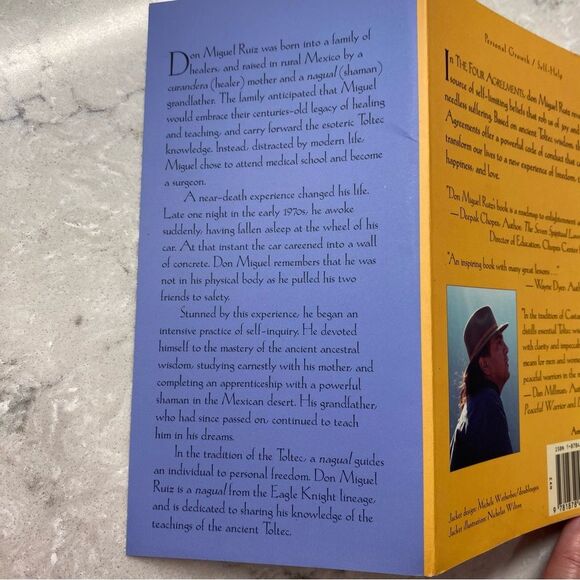 Don Miguel Ruiz was born into a family of
healers, and raised in rural Mexico by a
curandera (healer) mother and a nagual (shaman)
grandfather. The family anticipated that Miguel
would embrace their centuries-old legacy of healing
and teaching, and carry forward the esoteric Toltec
knowledge. Instead, distracted by modern life,
Miguel chose to attend medical school and become
a surgeon.
A near-death experience changed his life.
Late one night in the early 1970s, he awoke
suddenly, having fallen asleep at the wheel of his
car. At that instant the car careened into a wall
of concrete. Don Miguel remembers that he was
not in his physical body as he pulled his two
friends to safety.
Stunned by this experience, he began an
intensive practice of self-inquiry. He devoted
himself to the mastery of the ancient ancestral
wisdom, studying earnestly with his mother, and
completing an apprenticeship with a powerful
shaman in the Mexican desert. His grandfather,
who had since passed on, continued to teach
him in his dreams.
In the tradition of the Toltec, a nagual guides
an individual to personal freedom. Don Miguel
Ruiz is a nagual from the Eagle Knight lineage,
and is dedicated to sharing his knowledge of the
teachings of the ancient Toltec.
Personal Growth / Self-Help
In THE FOUR AGREEMENTS, don Miguel Ruiz
source of self-limiting beliefs that rob us of joy and
needless suffering. Based on ancient Toltec wisdom,
Agreements offer a powerful code of conduct that
transform our lives to a new experience of freedom,
happiness, and love.
"Don Miguel Ruiz's book is a roadmap to enlightenment
— Deepak Chopra, Author, The Seven Spiritual
Director of Education, Chopra Center
"An inspiring book with many great lessons . . ."
— Wayne Dyer,
"In the tradition of
distills essential Toltec
with clarity and
means for men and women
peaceful warriors in the
— Dan Millman,
Peaceful Warrior and
ISBN 1-878
9 781878
Jacket design: Michele Wetherbee/doubleugee
Jacket illustration: Nicholas Wilton